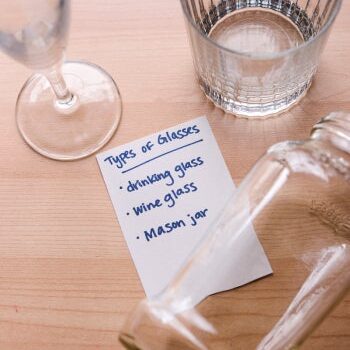 Types of Glasses
· drinking glass
· wine glass
· Mason jar